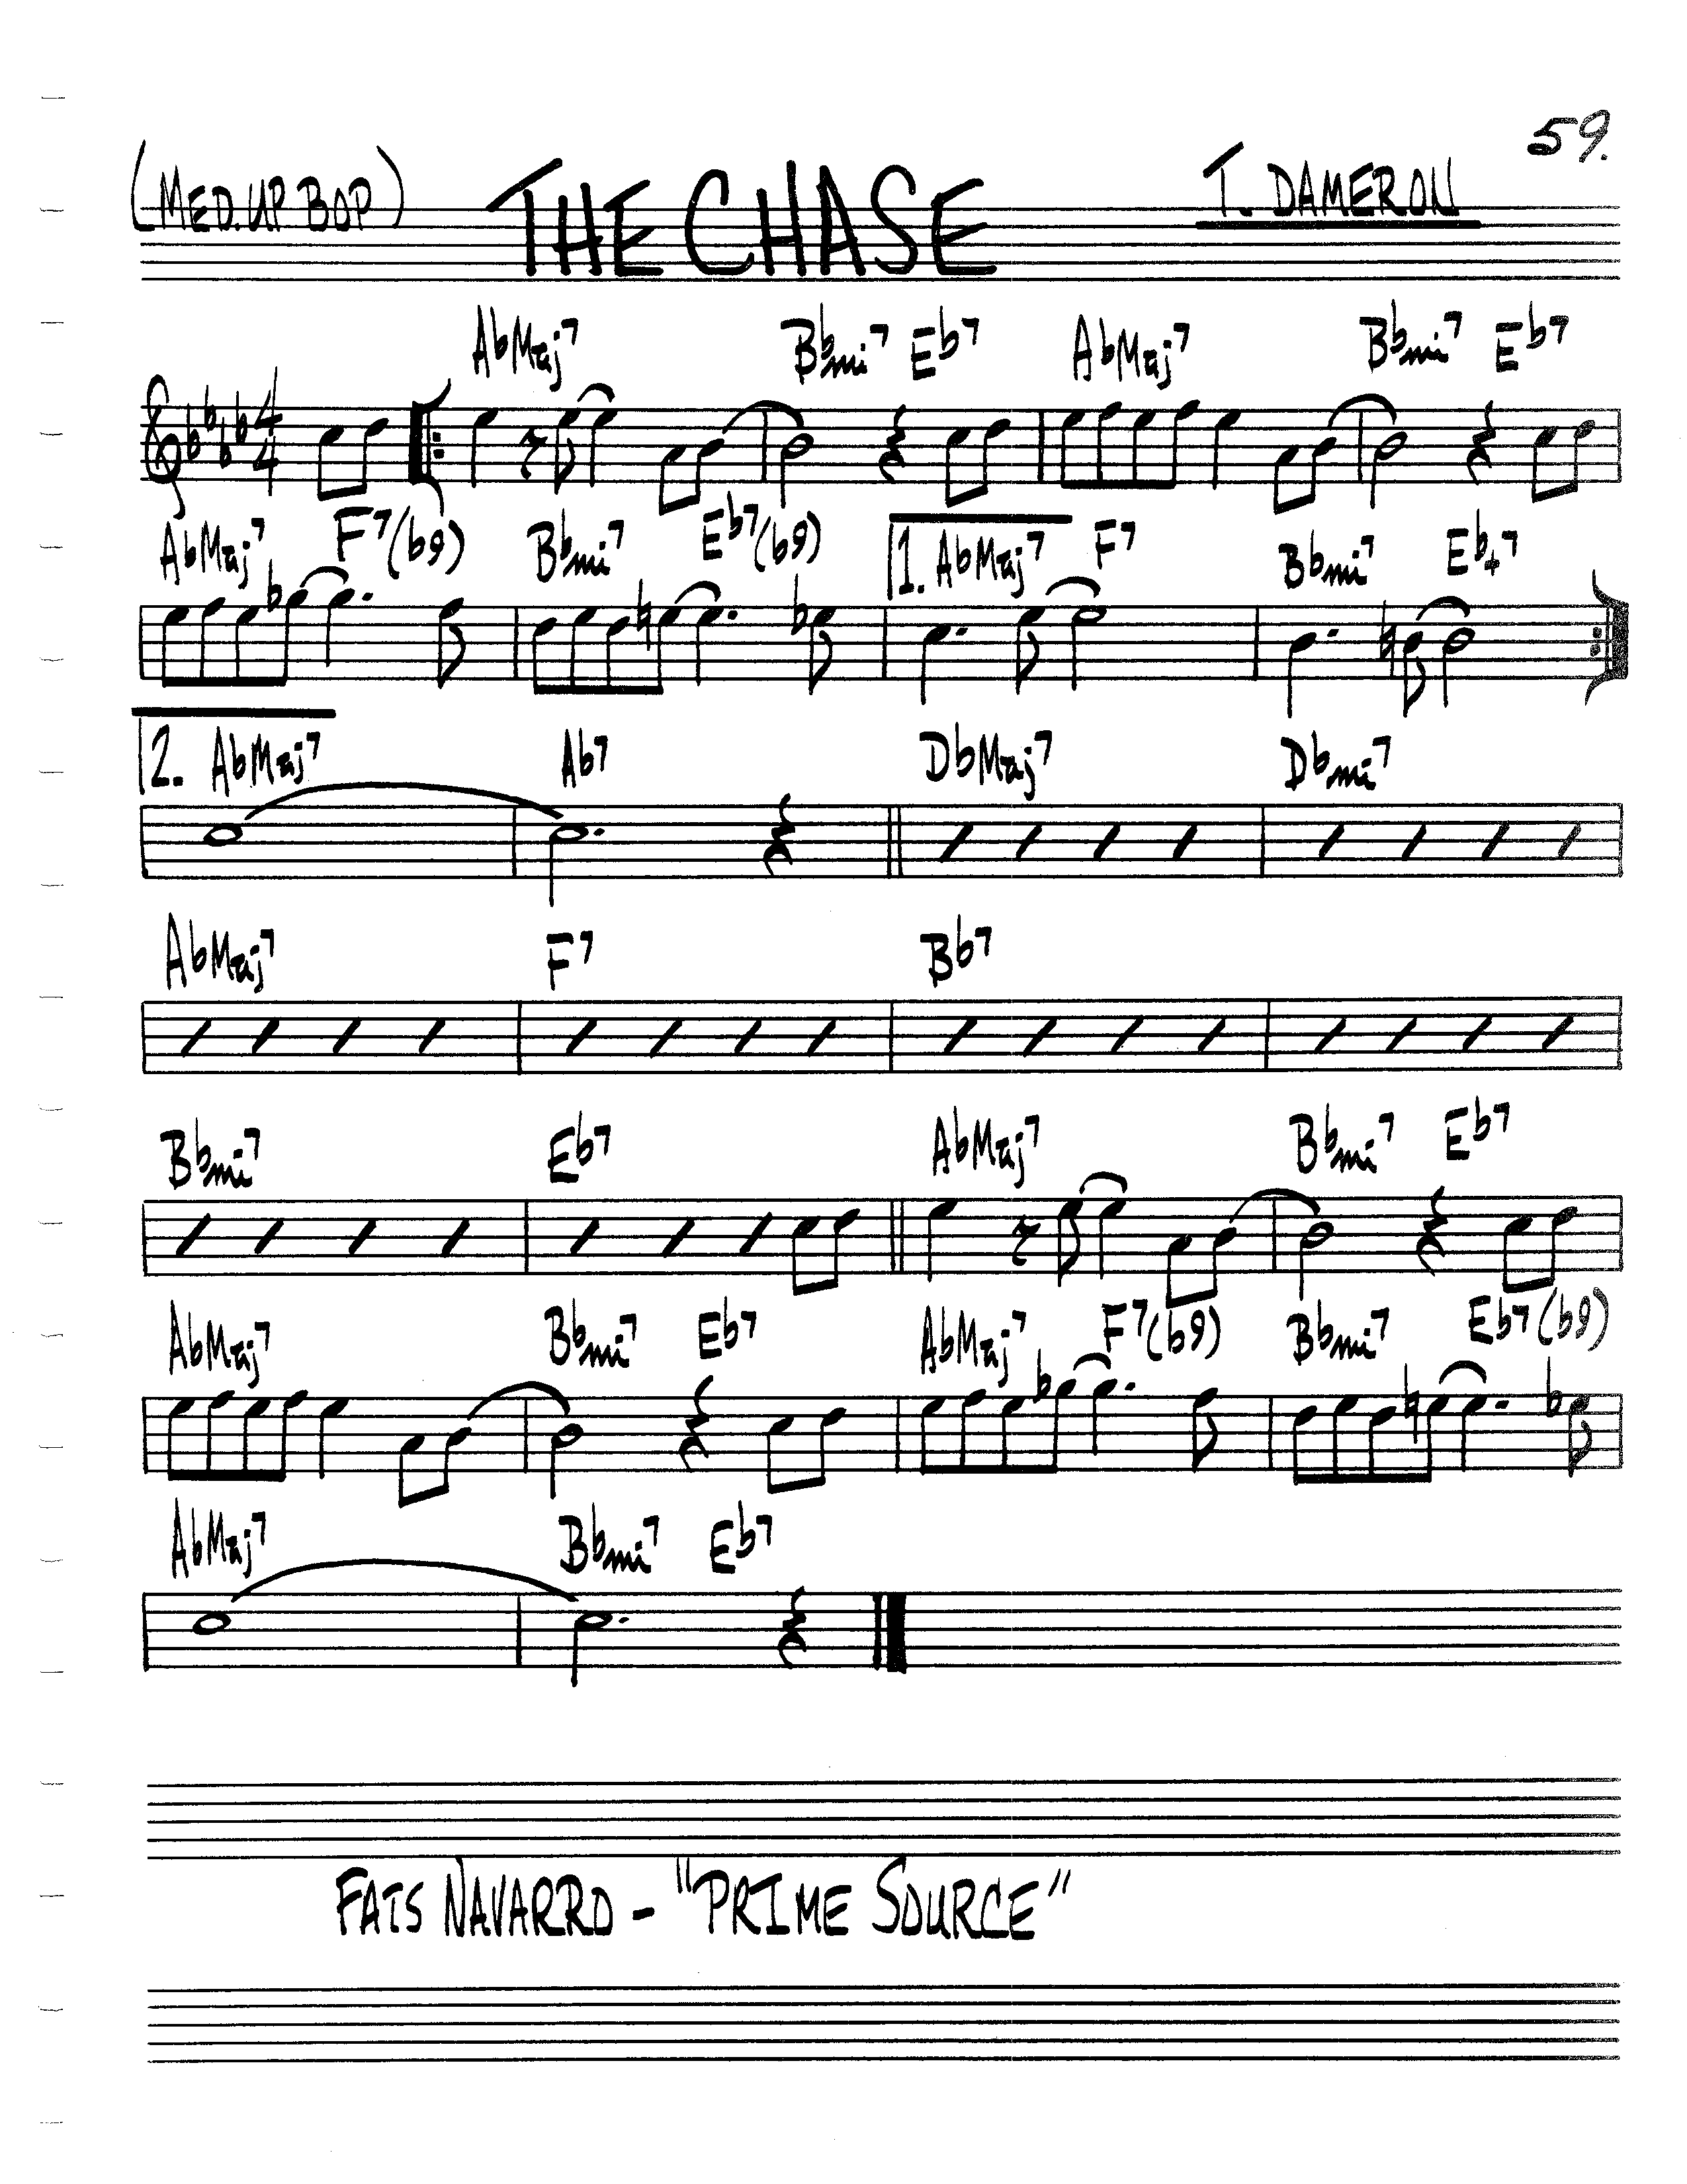 59.
(MED. UP BOP) THE CHASE T. DAMERON
AbMaj7 Bbmi7 Eb7 AbMaj7 Bbmi7 Eb7
4
4
AbMaj7 F7(b9) Bbmi7 Eb7(b9) 1. AbMaj7 F7 Bbmi7 Eb+7
2. AbMaj7 Ab7 DbMaj7 Dbmi7
AbMaj7 F7 Bb7
Bbmi7 Eb7 AbMaj7 Bbmi7 Eb7
AbMaj7 Bbmi7 Eb7 AbMaj7 F7(b9) Bbmi7 Eb7(b9)
AbMaj7 Bbmi7 Eb7
FATS NAVARRO - "PRIME SOURCE"